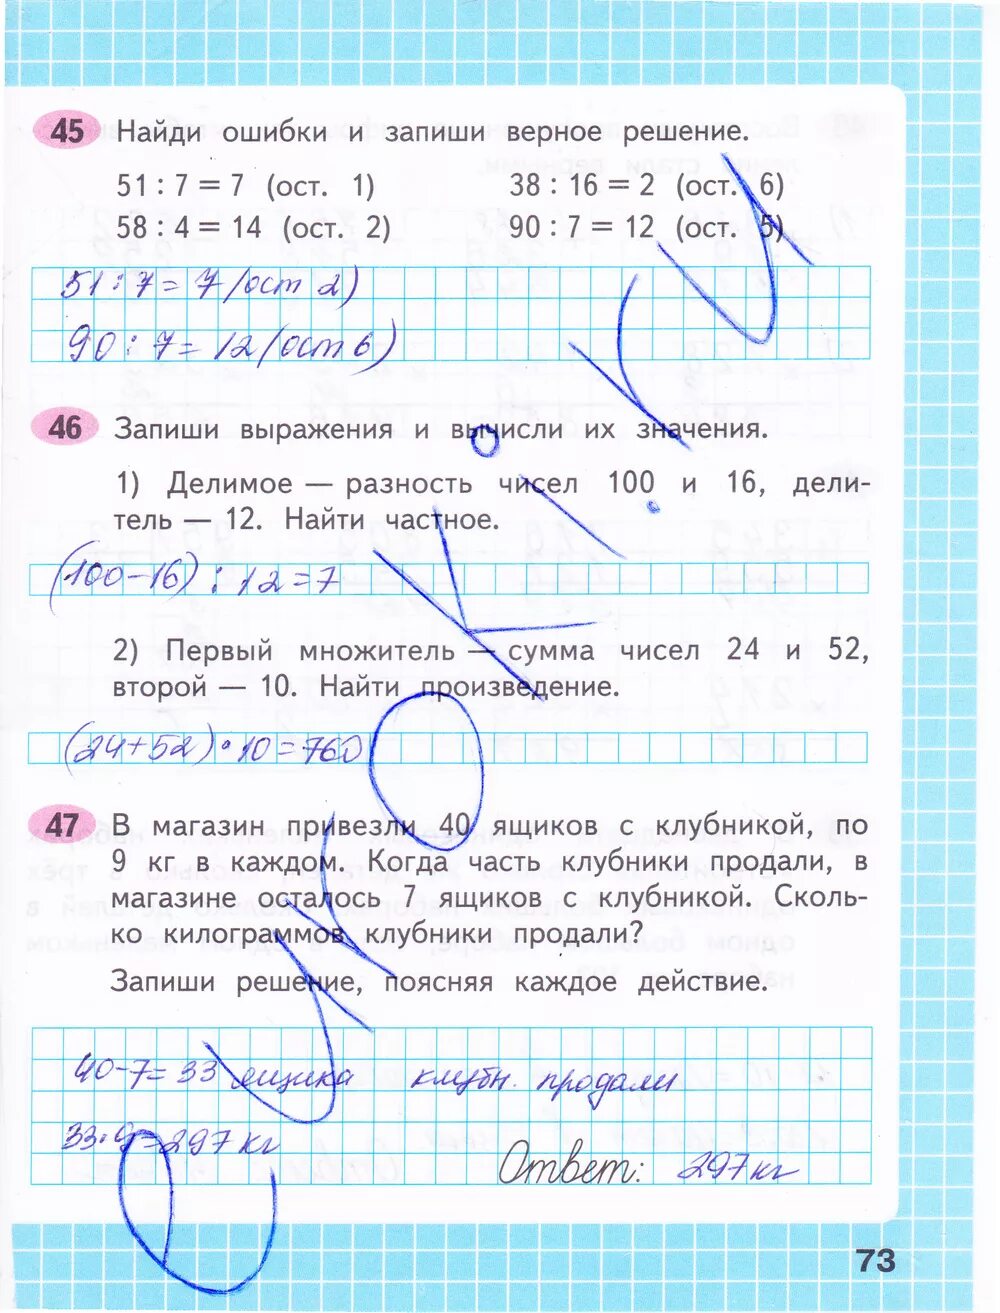 45 Найди ошибки и запиши верное решение.
51 : 7 = 7 (ост. 1) 38 : 16 = 2 (ост. 6)
58 : 4 = 14 (ост. 2) 90 : 7 = 12 (ост. 5)
51 : 7 = 7 (ост 2)
90 : 7 = 12 (ост 6)
46 Запиши выражения и вычисли их значения.
1) Делимое — разность чисел 100 и 16, дели-
тель — 12. Найти частное.
(100-16) : 12 = 7
2) Первый множитель — сумма чисел 24 и 52,
второй — 10. Найти произведение.
(24+52) · 10 = 760
47 В магазин привезли 40 ящиков с клубникой, по
9 кг в каждом. Когда часть клубники продали, в
магазине осталось 7 ящиков с клубникой. Сколь-
ко килограммов клубники продали?
Запиши решение, поясняя каждое действие.
40-7=33 ящика клубн. продали
33·9=297 кг
Ответ: 297 кг
73